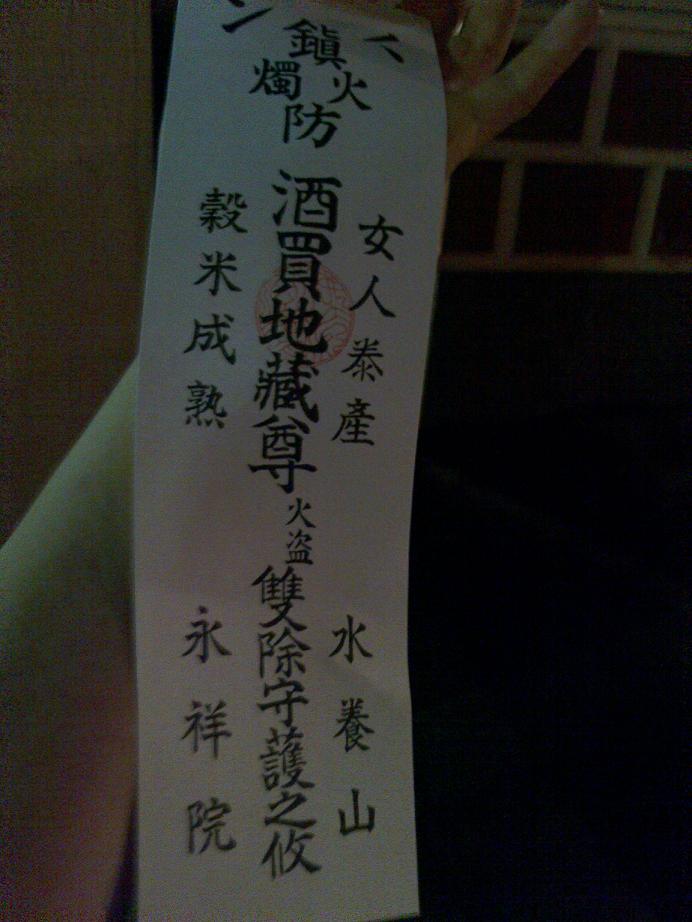 鎮
火
燭
防
女人泰産
酒買地藏尊
穀米成熟
火盗
雙除守護之攸
水養山
永祥院